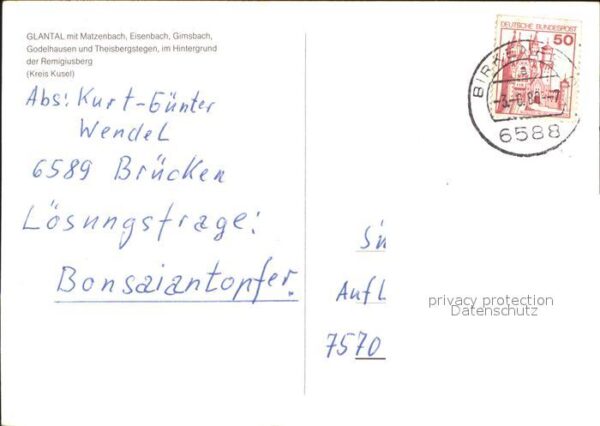 GLANTAL mit Matzenbach, Eisenbach, Gimsbach,
Godelhausen und Theisbergstegen, im Hintergrund
der Remigiusberg
(Kreis Kusel)
Abs: Kurt-Günter
Wendel
6589 Brücken
Lösungsfrage:
Bonsaiantopfer.
DEUTSCHE BUNDESPOST
50
6588
Aufl
7570
privacy protection
Datenschutz